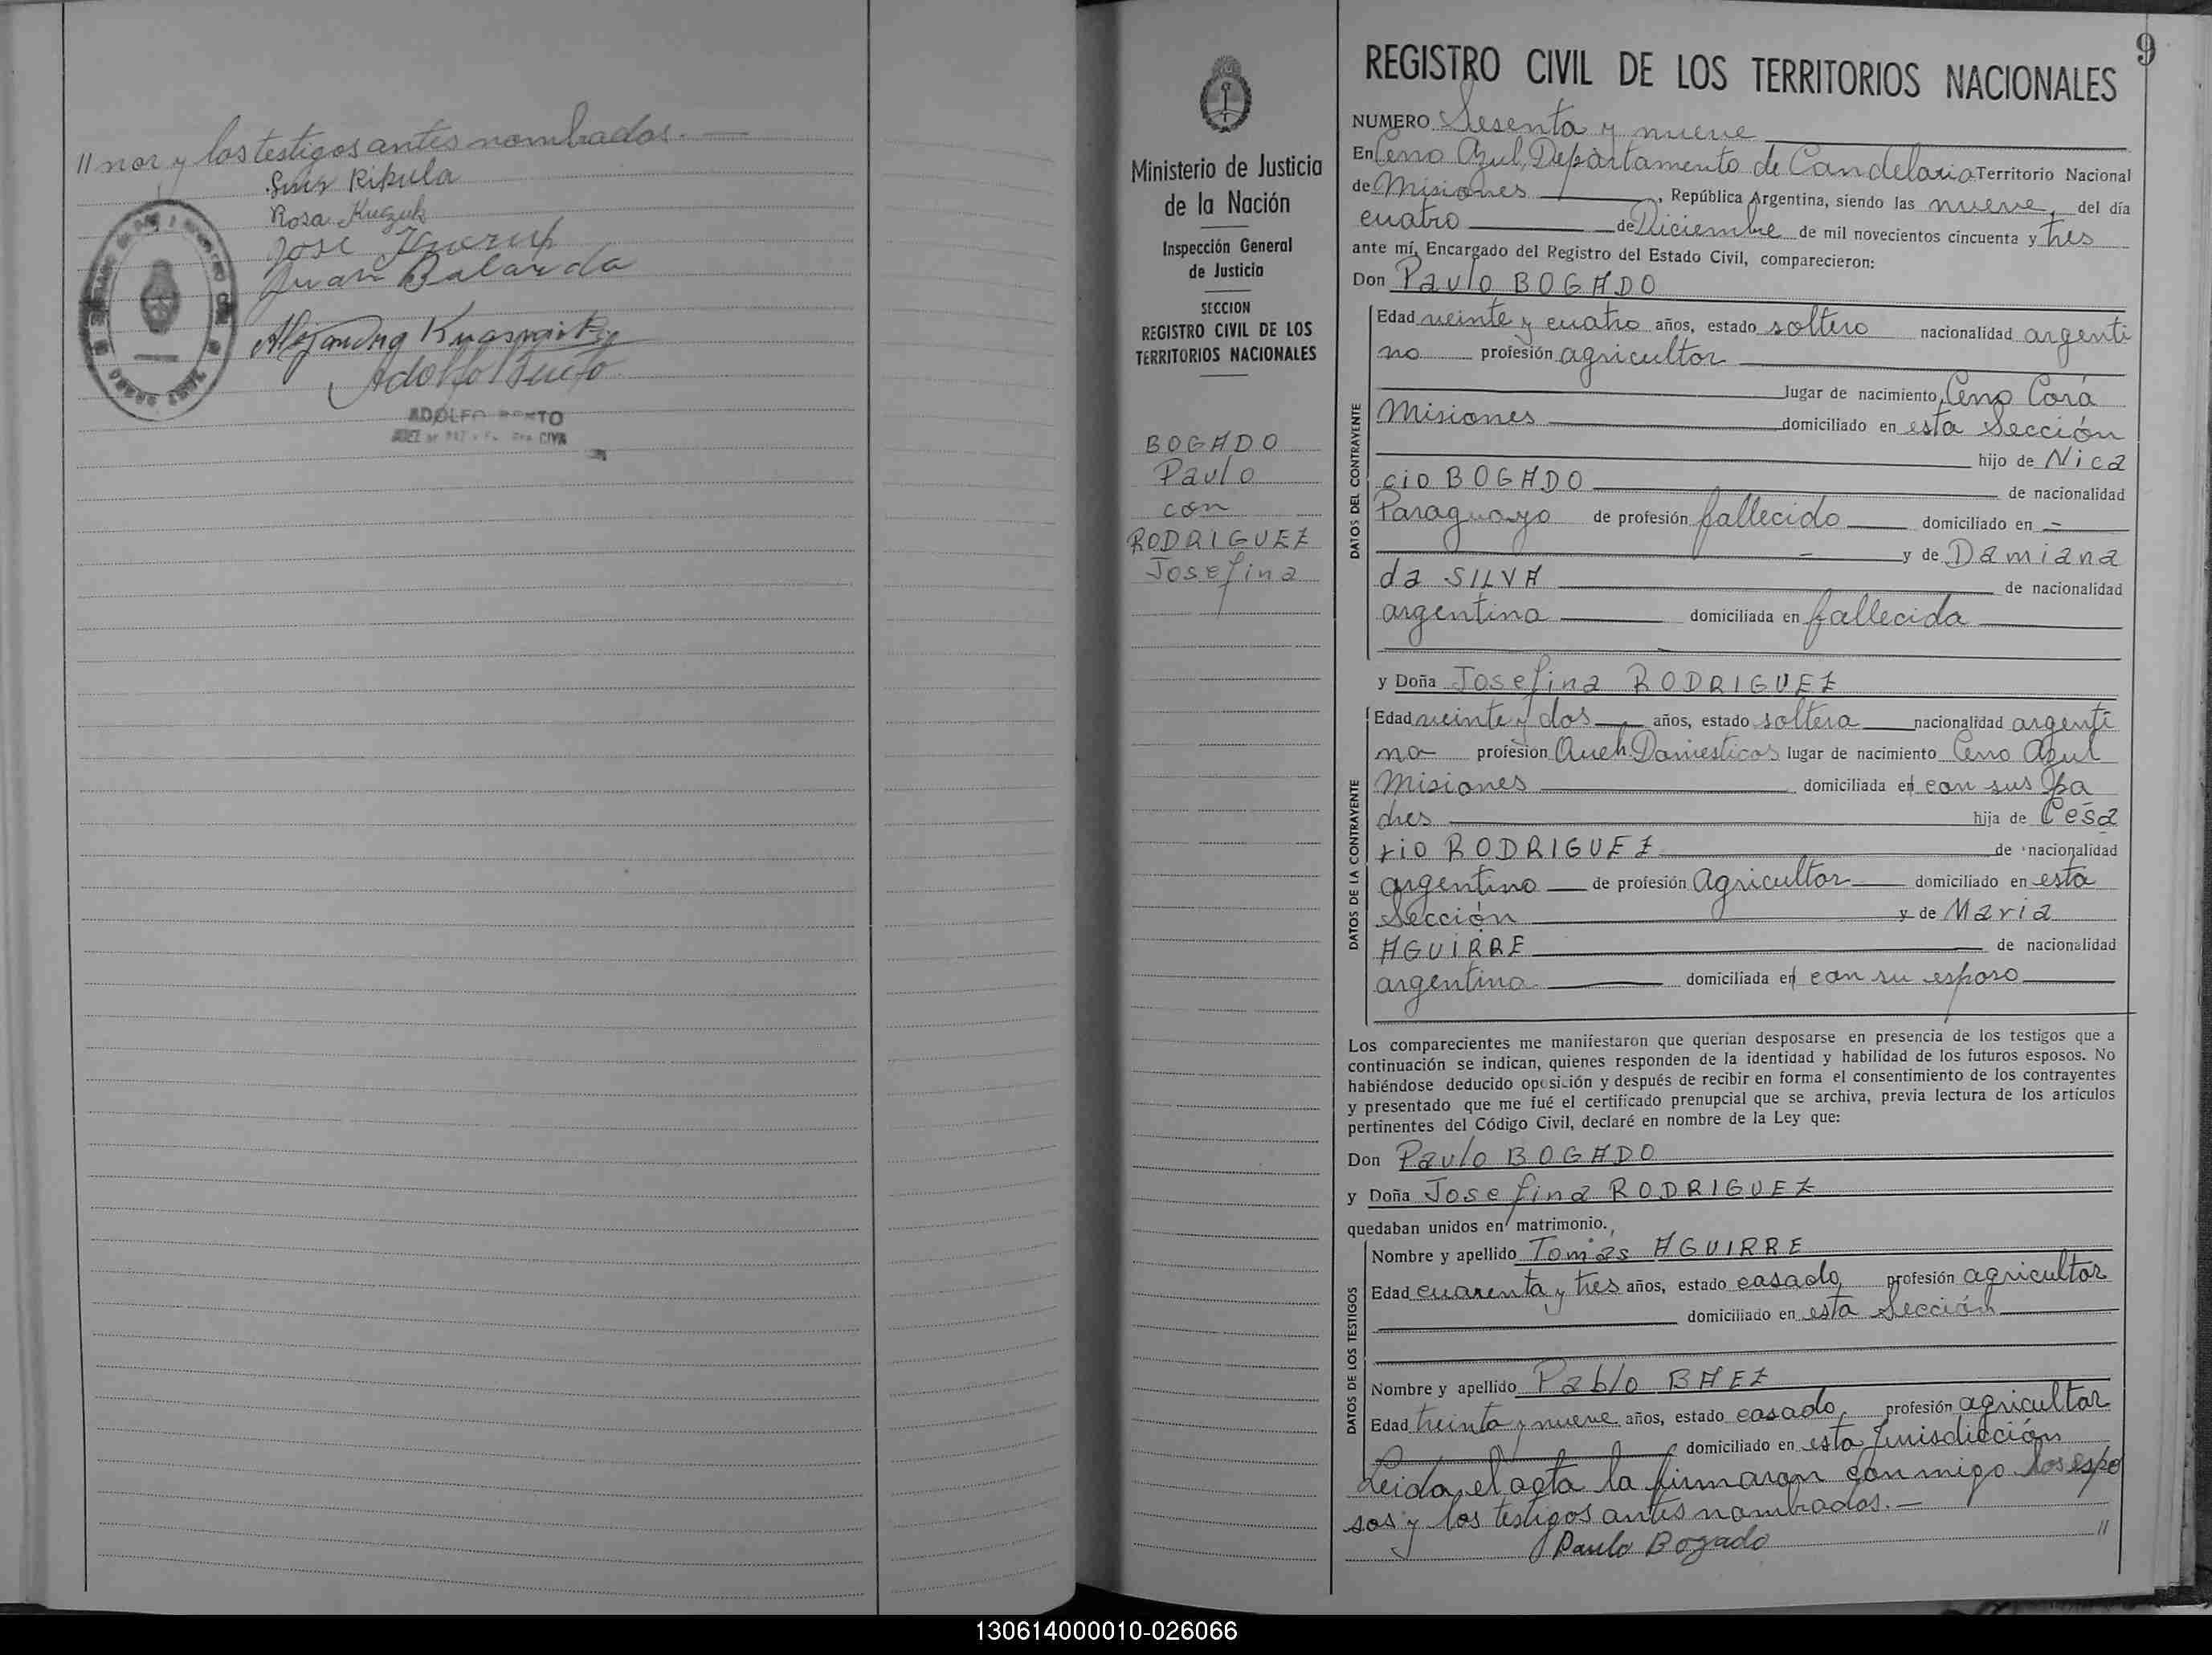 // nor y los testigos antes nombrados. —
Rikula
Rosa Kuczuk
José
Juan Balanda
Alejandra
Adolfo
ADOLFO
JUEZ
9
REGISTRO CIVIL DE LOS TERRITORIOS NACIONALES
Ministerio de Justicia
de la Nación
Inspección General
de Justicia
SECCION
REGISTRO CIVIL DE LOS
TERRITORIOS NACIONALES
BOGADO
Paulo
con
RODRIGUEZ
Josefina
NUMERO Sesenta y nueve
En Cerro Azul, Departamento de Candelaria Territorio Nacional
de Misiones, República Argentina, siendo las nueve, del día
cuatro de Diciembre de mil novecientos cincuenta y tres
ante mí, Encargado del Registro del Estado Civil, comparecieron:
Don Paulo BOGADO
DATOS DEL CONTRAYENTE
Edad veinte y cuatro años, estado soltero nacionalidad argenti
no profesión agricultor
lugar de nacimiento Cerro Corá
Misiones domiciliado en esta Sección
hijo de Nica
cio BOGADO de nacionalidad
Paraguayo de profesión fallecido domiciliado en -
- y de Damiana
da SILVA de nacionalidad
argentina domiciliada en fallecida
y Doña Josefina RODRIGUEZ
DATOS DE LA CONTRAYENTE
Edad veinte y dos años, estado soltera nacionalidad argenti
na profesión Queh. Domesticos lugar de nacimiento Cerro Azul
Misiones domiciliada en con sus pa
dres hija de Cesa
rio RODRIGUEZ de nacionalidad
argentino de profesión Agricultor domiciliado en esta
Sección y de Maria
AGUIRRE de nacionalidad
argentina domiciliada en con su esposo
Los comparecientes me manifestaron que querían desposarse en presencia de los testigos que a
continuación se indican, quienes responden de la identidad y habilidad de los futuros esposos. No
habiéndose deducido oposición y después de recibir en forma el consentimiento de los contrayentes
y presentado que me fué el certificado prenupcial que se archiva, previa lectura de los artículos
pertinentes del Código Civil, declaré en nombre de la Ley que:
Don Paulo BOGADO
y Doña Josefina RODRIGUEZ
quedaban unidos en matrimonio.
DATOS DE LOS TESTIGOS
Nombre y apellido Tomás AGUIRRE
Edad cuarenta y tres años, estado casado profesión agricultor
domiciliado en esta Sección
Nombre y apellido Pablo BAEZ
Edad treinta y nueve años, estado casado profesión agricultor
domiciliado en esta Jurisdicción
Leida el acta la firmaron conmigo los espo
sos y los testigos antes nombrados. —
Paulo Bogado //
130614000010-026066